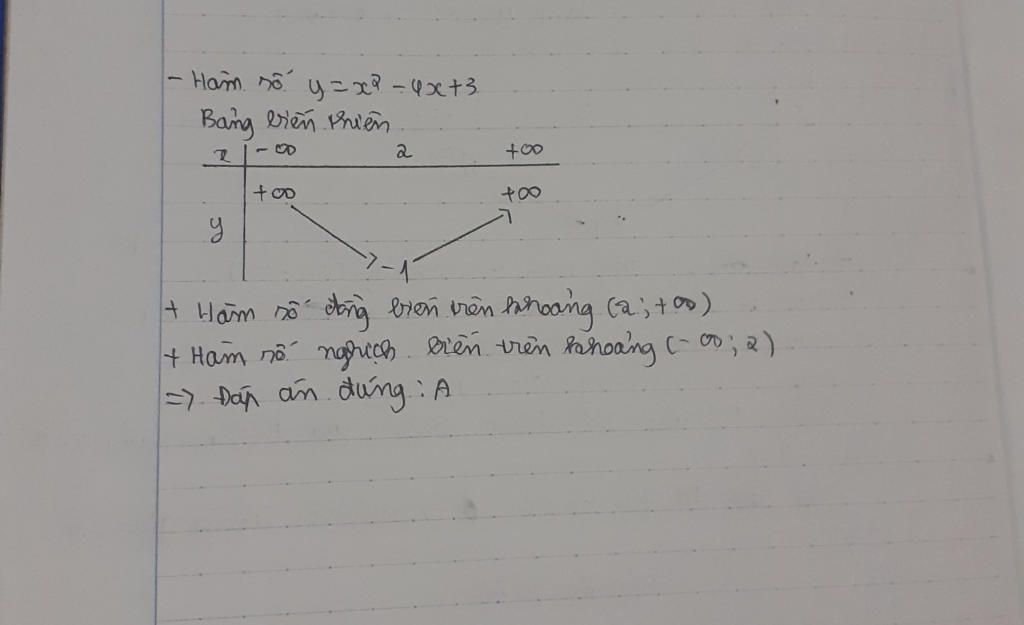 - Hàm số y = x² - 4x + 3
Bảng biến thiên
x -∞ 2 +∞
+∞ +∞
y
-1
+ Hàm số đồng biến trên khoảng (2; +∞)
+ Hàm số nghịch biến trên khoảng (-∞; 2)
=> Đáp án đúng: A